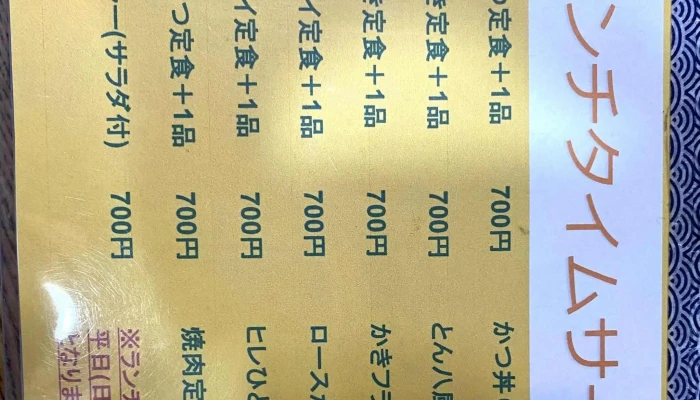 ンチタイムサー
つ定食＋1品 700円 かつ丼
き定食＋1品 700円 とん八
き定食＋1品 700円 かきフラ
イ定食＋1品 700円 ロース
イ定食＋1品 700円 ヒレひ
つ定食＋1品 700円 焼肉定
ー(サラダ付) 700円
※ラン
平日(日
となりま